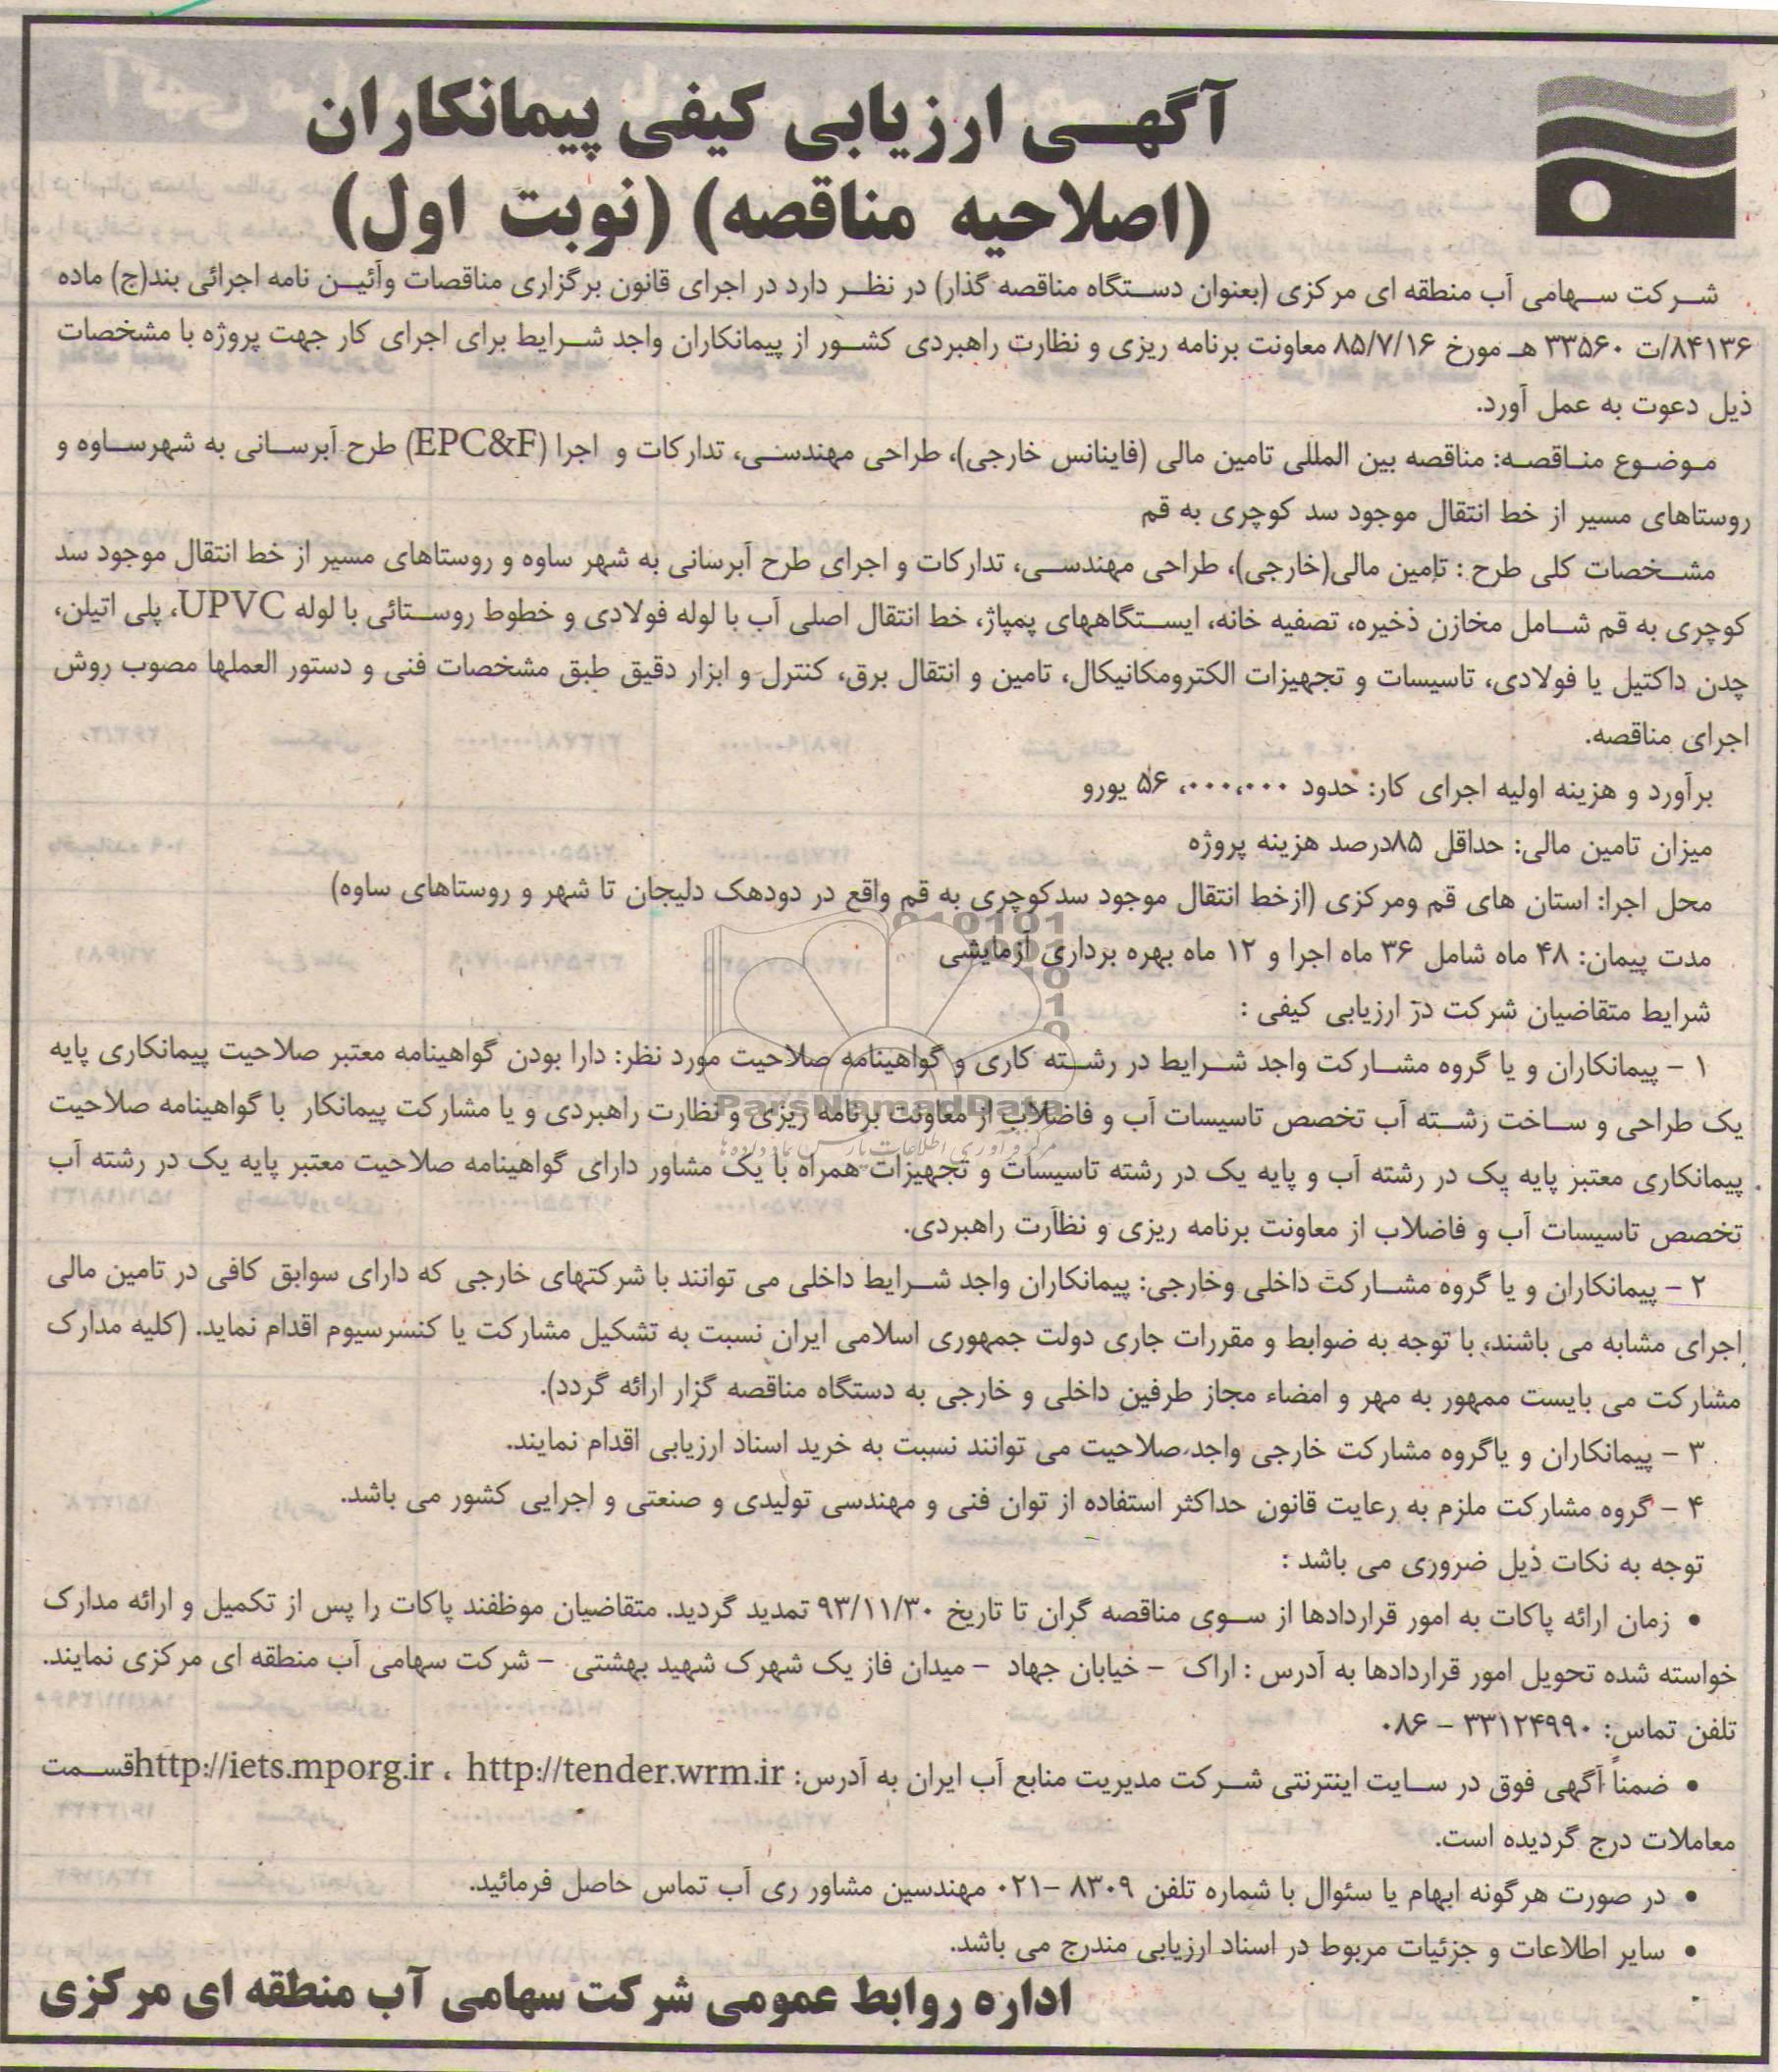 آگهی ارزیابی کیفی پیمانکاران
(اصلاحیه مناقصه) (نوبت اول)
شرکت سهامی آب منطقه ای مرکزی (بعنوان دستگاه مناقصه گذار) در نظر دارد در اجرای قانون برگزاری مناقصات وآئین نامه اجرائی بند(ج) ماده
۸۴۱۳۶/ت ۳۳۵۶۰ هـ مورخ ۸۵/۷/۱۶ معاونت برنامه ریزی و نظارت راهبردی کشور از پیمانکاران واجد شرایط برای اجرای کار جهت پروژه با مشخصات
ذیل دعوت به عمل آورد.
موضوع مناقصه: مناقصه بین المللی تامین مالی (فاینانس خارجی)، طراحی مهندسی، تدارکات و اجرا (EPC&F) طرح آبرسانی به شهرساوه و
روستاهای مسیر از خط انتقال موجود سد کوچری به قم
مشخصات کلی طرح : تامین مالی(خارجی)، طراحی مهندسی، تدارکات و اجرای طرح آبرسانی به شهر ساوه و روستاهای مسیر از خط انتقال موجود سد
کوچری به قم شامل مخازن ذخیره، تصفیه خانه، ایستگاههای پمپاژ، خط انتقال اصلی آب با لوله فولادی و خطوط روستائی با لوله UPVC، پلی اتیلن،
چدن داکتیل یا فولادی، تاسیسات و تجهیزات الکترومکانیکال، تامین و انتقال برق، کنترل و ابزار دقیق طبق مشخصات فنی و دستور العملها مصوب روش
اجرای مناقصه.
برآورد و هزینه اولیه اجرای کار: حدود ۵۶،۰۰۰،۰۰۰ یورو
میزان تامین مالی: حداقل ۸۵درصد هزینه پروژه
محل اجرا: استان های قم ومرکزی (ازخط انتقال موجود سدکوچری به قم واقع در دودهک دلیجان تا شهر و روستاهای ساوه)
مدت پیمان: ۴۸ ماه شامل ۳۶ ماه اجرا و ۱۲ ماه بهره برداری آزمایشی
شرایط متقاضیان شرکت در ارزیابی کیفی :
۱ – پیمانکاران و یا گروه مشارکت واجد شرایط در رشته کاری و گواهینامه صلاحیت مورد نظر: دارا بودن گواهینامه معتبر صلاحیت پیمانکاری پایه
یک طراحی و ساخت رشته آب تخصص تاسیسات آب و فاضلاب از معاونت برنامه ریزی و نظارت راهبردی و یا مشارکت پیمانکار با گواهینامه صلاحیت
پیمانکاری معتبر پایه یک در رشته آب و پایه یک در رشته تاسیسات و تجهیزات همراه با یک مشاور دارای گواهینامه صلاحیت معتبر پایه یک در رشته آب
تخصص تاسیسات آب و فاضلاب از معاونت برنامه ریزی و نظارت راهبردی.
۲ – پیمانکاران و یا گروه مشارکت داخلی وخارجی: پیمانکاران واجد شرایط داخلی می توانند با شرکتهای خارجی که دارای سوابق کافی در تامین مالی
اجرای مشابه می باشند، با توجه به ضوابط و مقررات جاری دولت جمهوری اسلامی ایران نسبت به تشکیل مشارکت یا کنسرسیوم اقدام نماید. (کلیه مدارک
مشارکت می بایست ممهور به مهر و امضاء مجاز طرفین داخلی و خارجی به دستگاه مناقصه گزار ارائه گردد).
۳ – پیمانکاران و یاگروه مشارکت خارجی واجد صلاحیت می توانند نسبت به خرید اسناد ارزیابی اقدام نمایند.
۴ – گروه مشارکت ملزم به رعایت قانون حداکثر استفاده از توان فنی و مهندسی تولیدی و صنعتی و اجرایی کشور می باشد.
توجه به نکات ذیل ضروری می باشد :
• زمان ارائه پاکات به امور قراردادها از سوی مناقصه گران تا تاریخ ۹۳/۱۱/۳۰ تمدید گردید. متقاضیان موظفند پاکات را پس از تکمیل و ارائه مدارک
خواسته شده تحویل امور قراردادها به آدرس : اراک – خیابان جهاد – میدان فاز یک شهرک شهید بهشتی – شرکت سهامی آب منطقه ای مرکزی نمایند.
تلفن تماس: ۳۳۱۲۴۹۹۰ – ۰۸۶
• ضمناً آگهی فوق در سایت اینترنتی شرکت مدیریت منابع آب ایران به آدرس: http://tender.wrm.ir ، http://iets.mporg.irقسمت
معاملات درج گردیده است.
• در صورت هرگونه ابهام یا سئوال با شماره تلفن ۸۳۰۹ –۰۲۱ مهندسین مشاور ری آب تماس حاصل فرمائید.
• سایر اطلاعات و جزئیات مربوط در اسناد ارزیابی مندرج می باشد.
اداره روابط عمومی شرکت سهامی آب منطقه ای مرکزی
ParsNamadData